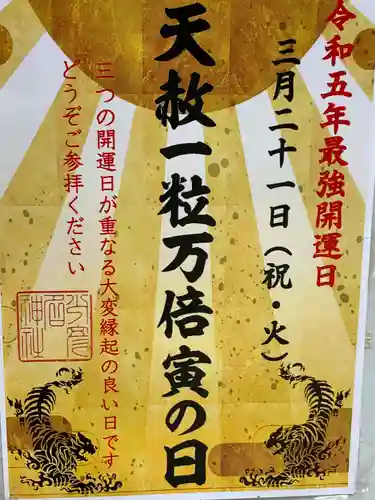 令和五年最強開運日
三月二十一日（祝・火）
天赦一粒万倍寅の日
三つの開運日が重なる大変縁起の良い日です
どうぞご参拝ください